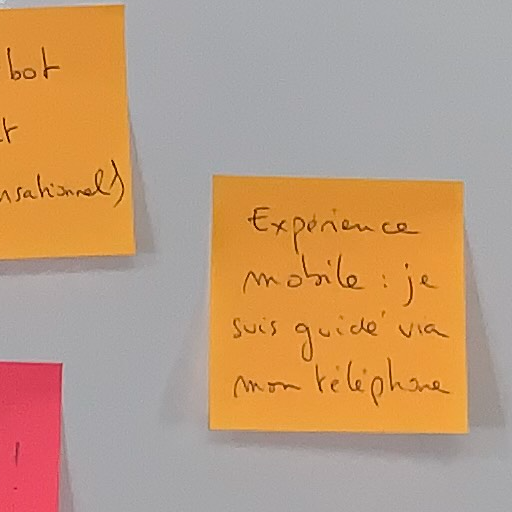 bot
nsationnel)
Expérience
mobile : je
suis guidé via
mon téléphone
!